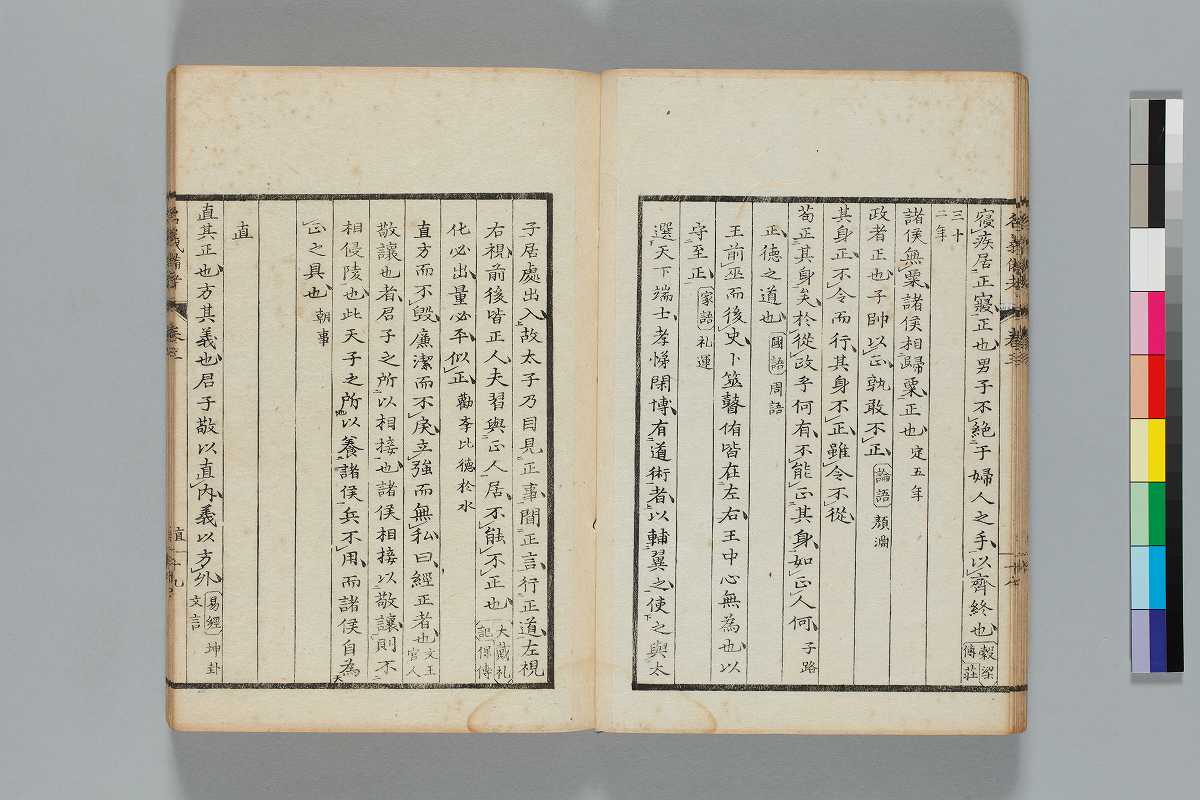 寢疾居正寢正也男子不絕于婦人之手以齊終也 穀梁傳 莊
三十二年
諸侯無粟諸侯相歸粟正也 定五年
政者正也子帥以正孰敢不正 論語 顏淵
其身正不令而行其身不正雖令不從
苟正其身矣於從政乎何有不能正其身如正人何 子路
正德之道也 國語 周語
王前巫而後史卜筮瞽侑皆在左右王中心無為也以
守至正 家語 礼運
選天下端士孝悌閑博有道術者以輔翼之使之與太
子居處出入故太子乃目見正事聞正言行正道左視
右視前後皆正人夫習與正人居不能不正也 大戴礼記 保傅
化必出量必平似正 勸学比德於水
直方而不毀廉潔而不戾立強而無私曰經正者也 文王官人
敬讓也者君子之所以相接也諸侯相接以敬讓則不
相侵陵也此天子之所以養諸侯兵不用而諸侯自為
正之具也 朝事
直
直其正也方其義也君子敬以直內義以方外 易經 坤卦文言